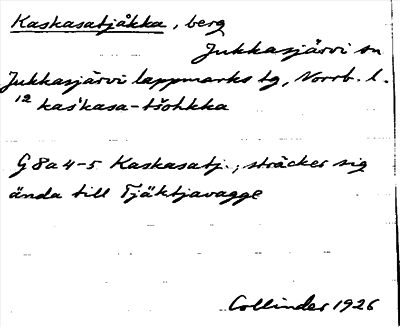 Kaskasatjåkka, berg
Jukkasjärvi sn
Jukkasjärvi lappmarks tg, Norrb. l.
12 kas'kasa-tšohkka
G 8a 4-5 Kaskasatj.; sträcker sig
ända till Tjäktjavagge
Collinder 1926